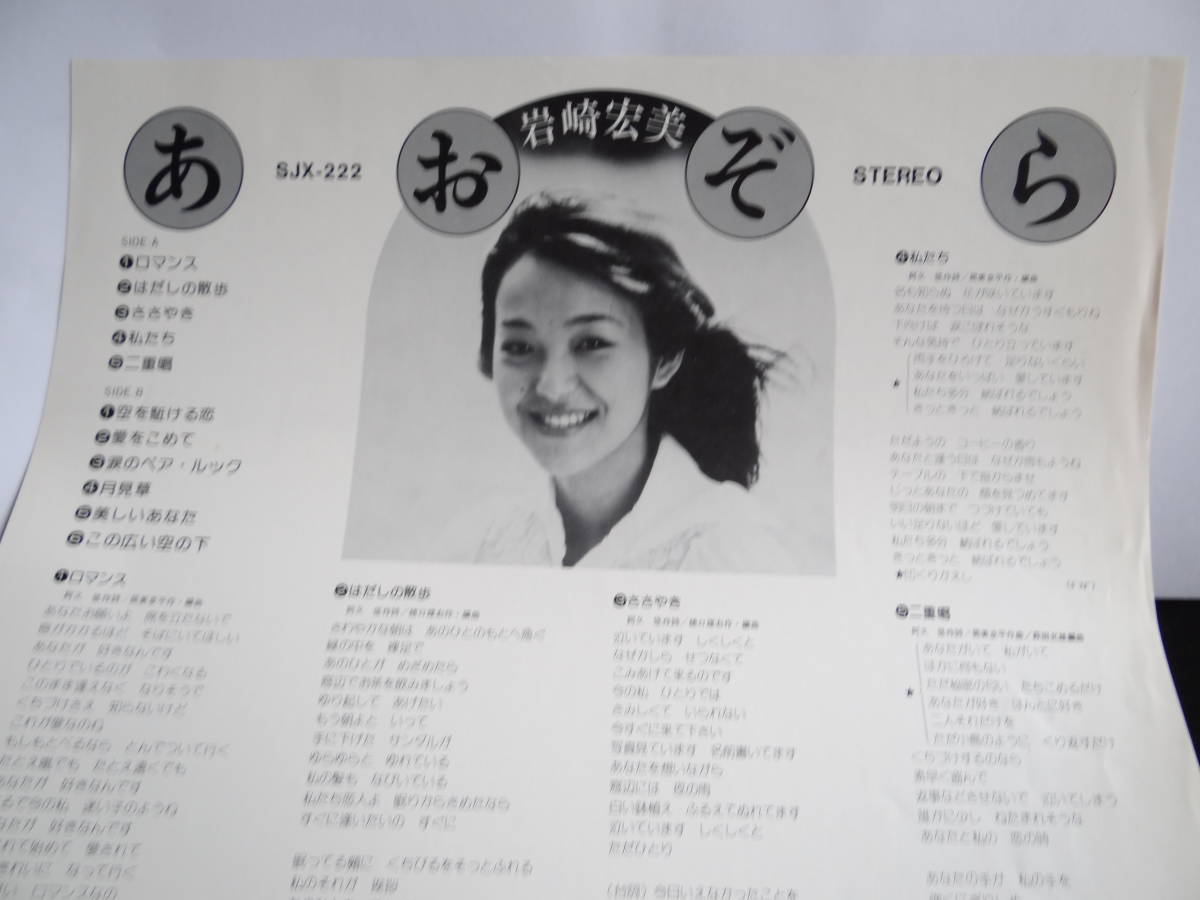 あおぞら
岩崎宏美
SJX-222
STEREO
SIDE A
❶ロマンス
❷はだしの散歩
❸ささやき
❹私たち
❺二重唱
SIDE B
❶空を駈ける恋
❷愛をこめて
❸涙のペア・ルック
❹月見草
❺美しいあなた
❻この広い空の下
❶ロマンス
あなたお願いよ 席を立たないで
息がかかるほど そばにいてほしい
あなたが 好きなんです
ひとりでいるのが こわくなる
このまま逢えなく なりそうで
くちづけさえ 知らないけど
これが愛なのね
もしもとべるなら とんでついて行く
たとえ嵐でも たとえ遠くでも
あなたが 好きなんです
るで今の私 迷い子のようね
なたが 好きなんです
れて始めて 愛されて
れいに なって行く
い ロマンスなの
❷はだしの散歩
さわやかな朝は あのひとのもとへ急ぐ
緑の中を 裸足で
あのひとが めざめたら
窓辺でお茶を飲みましょう
ゆり起して あげたい
もう朝よと いって
手に下げた サンダルが
ゆらゆらと ゆれている
私の髪も なびいている
私たち恋人よ 眠りからさめたなら
すぐに逢いたいの すぐに
眠ってる頬に くちびるをそっとふれる
私のそれが 挨拶
❸ささやき
泣いています しくしくと
なぜかしら せつなくて
こみあげて来るのです
今の私 ひとりでは
さみしくて いられない
今すぐに来て下さい
写真見ています 名前書いてます
あなたを想いながら
窓辺には 夜の雨
白い鉢植え ふるえてぬれてます
泣いています しくしくと
ただひとり
(台詞)今日いえなかったことを
❹私たち
名も知らぬ 花が咲いています
あなたを待つ日は なぜかうすぐもりね
下向けば 涙こぼれそうな
そんな気持で ひとり立っています
両手をひろげて 足りないくらい
★ あなたをいっぱい 愛しています
私たち多分 結ばれるでしょう
きっときっと 結ばれるでしょう
ただようの コーヒーの香り
あなたと逢う日は なぜか雨もようね
テーブルの 下で指からませ
じっとあなたの 顔を見つめてます
明日の朝まで つづけていても
いい足りないほど 愛しています
私たち多分 結ばれるでしょう
きっときっと 結ばれるでしょう
★印くりかえし
❺二重唱
あなたがいて 私がいて
ほかに何もない
★ ただ秘密の匂い たちこめるだけ
あなたが好き ほんとに好き
二人それだけを
ただ小鳥のように くり返すだけ
くちづけするのなら
素早く盗んで
返事などさせないで 泣いてしまう
誰かに少し ねたまれそうな
あなたと私の 恋の時
あなたの手が 私の手を